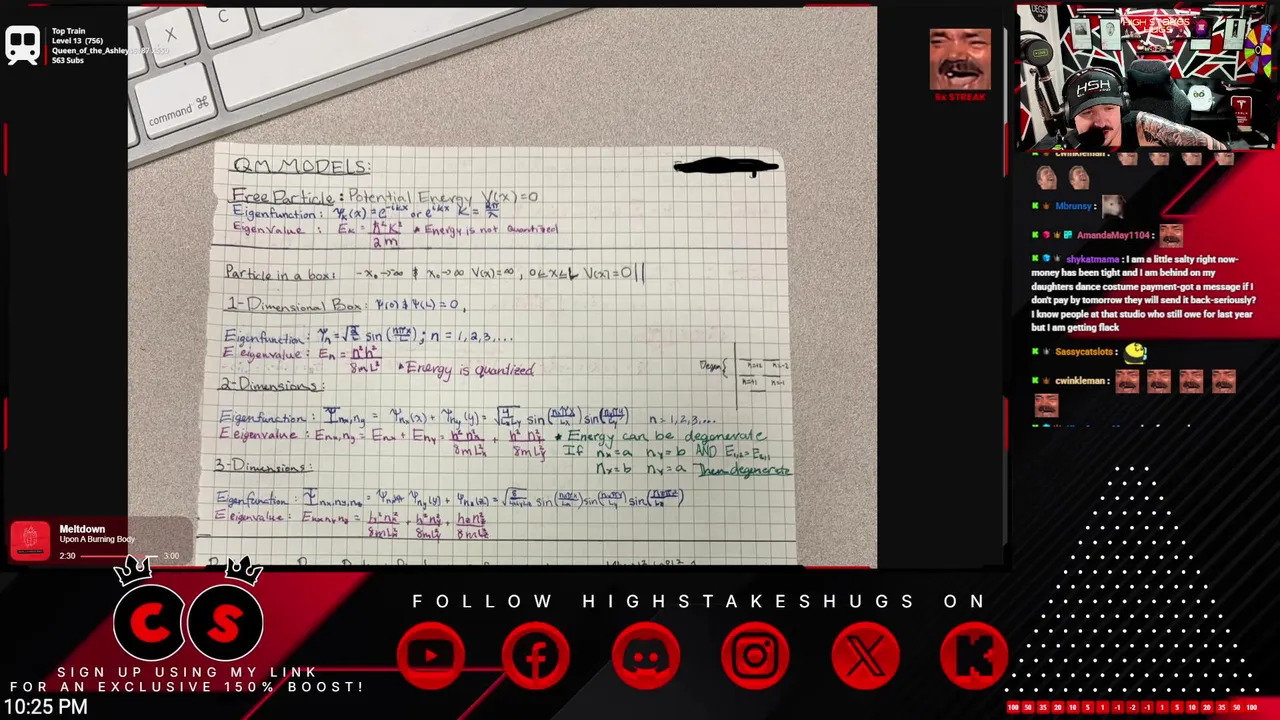 Top Train
Level 13 (756)
563 Subs
X
C
command ⌘
5x STREAK
HIGH STAKES HUGS
HSH
QM MODELS:
Free Particle: Potential Energy V(x)=0
Eigenfunction: Ψk(x)=e^-ikx or e^ikx K=
Eigenvalue: Ek = ħ²K²/2m * Energy is not Quantized
Particle in a box: -x₀→∞ & x₀→∞ V(x)=∞, 0≤x≤L V(x)=0 ||
1-Dimensional Box: Ψ(0) & Ψ(L)=0,
Eigenfunction: Ψn=√2/L sin(nπx/L); n = 1,2,3,...
E eigenvalue: En = n²h²/8mL² * Energy is quantized
Degen{ n=+2 n=-2
n=+1 n=-1
2-Dimensions:
Eigenfunction: Ψnx,ny = Ψnx(x)+Ψny(y) = √4/LxLy sin(nxπx/Lx) sin(nyπy/Ly) n=1,2,3...
E eigenvalue: Enx,ny = Enx + Eny = h²nx²/8mLx² + h²ny²/8mLy² * Energy can be degenerate
If nx=a ny=b AND E1,2=E2,1
nx=b ny=a Then degenerate
3-Dimensions:
Eigenfunction: Ψnx,ny,nz = Ψnx(x) Ψny(y) Ψnz(z) = sin(nxπx/Lx) sin(nyπy/Ly) sin
E eigenvalue: Enx,ny,nz = h²nx²/8mLx² + h²ny²/8mLy² +
cwinkleman
Mbrunsy
AmandaMay1104:
shykatmama: I am a little salty right now-
money has been tight and I am behind on my
daughters dance costume payment-got a message if I
don't pay by tomorrow they will send it back-seriously?
I know people at that studio who still owe for last year
but I am getting flack
Sassycatslots:
cwinkleman:
Meltdown
Upon A Burning Body
2:30 3:00
C S
SIGN UP USING MY LINK
FOR AN EXCLUSIVE 150% BOOST!
10:25 PM
FOLLOW HIGHSTAKESHUGS ON
100 50 35 20 10 5 1 -1 -2 -1 1 5 10 20 35 50 100